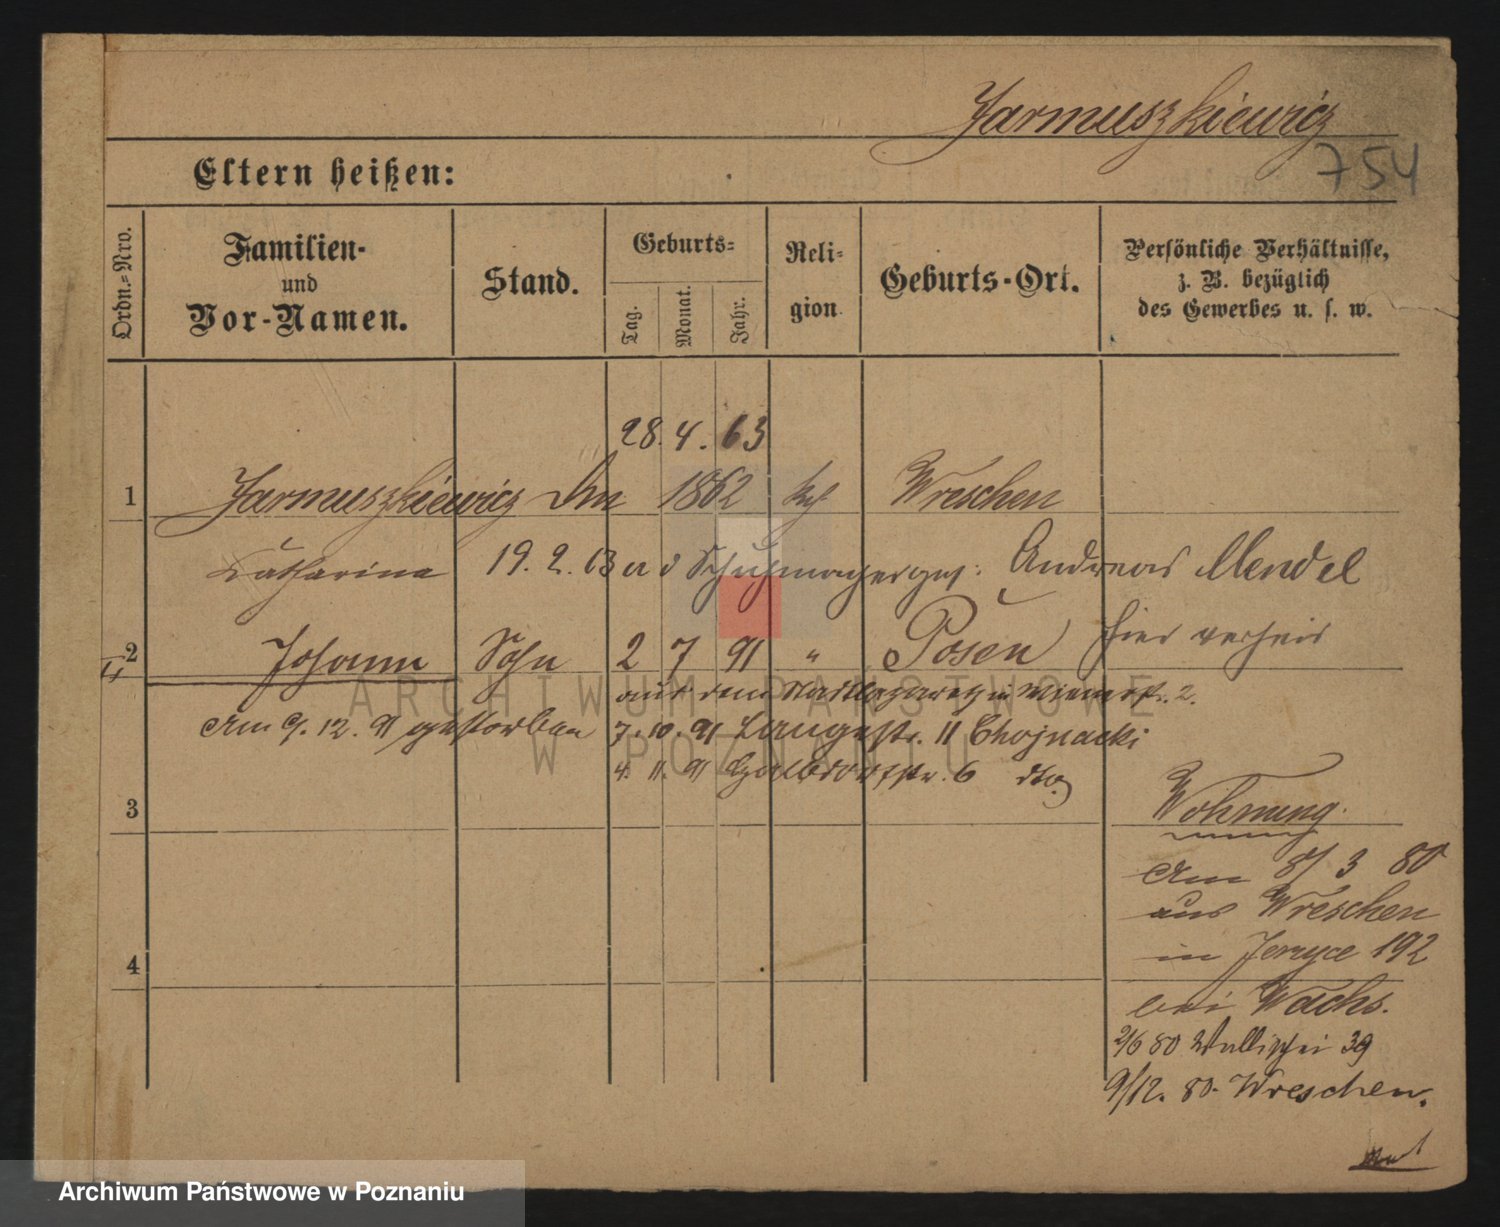 Jarmuszkiewicz
754
Eltern heißen:
Ordn.-Nro.
Familien-
und
Vor-Namen.
Stand.
Geburts-
Tag.
Monat.
Jahr.
Reli-
gion
Geburts-Ort.
Persönliche Verhältnisse,
z. B. bezüglich
des Gewerbes u. s. w.
28. 4. 63
1 Jarmuszkiewicz 1862 Wreschen
Catharina 19. 2. 63 Schuhmacherges: Andreas Mendel
2 Johann Sohn 2 7 91 " Posen hier
aus dem Stadtlazareth 2.
am 9. 12. 91 gestorben 7. 10. 91 Langestr. 11 Chojnacki
4. 11. 91 Halbdorfstr. 6 dto
3
Wohnung.
am 8/ 3 80
aus Wreschen
in Jerzyce 192
4
bei Wachs.
2/6 80 Wallischei 39
9/12. 80. Wreschen.
ARCHIWUM PAŃSTWOWE
W POZNANIU
Archiwum Państwowe w Poznaniu